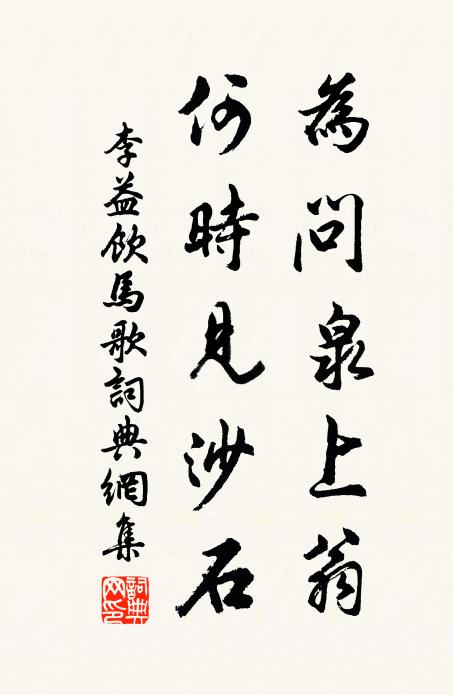 為問泉上翁
何時見沙石
李益飲馬歌詞典網集
詞典网印